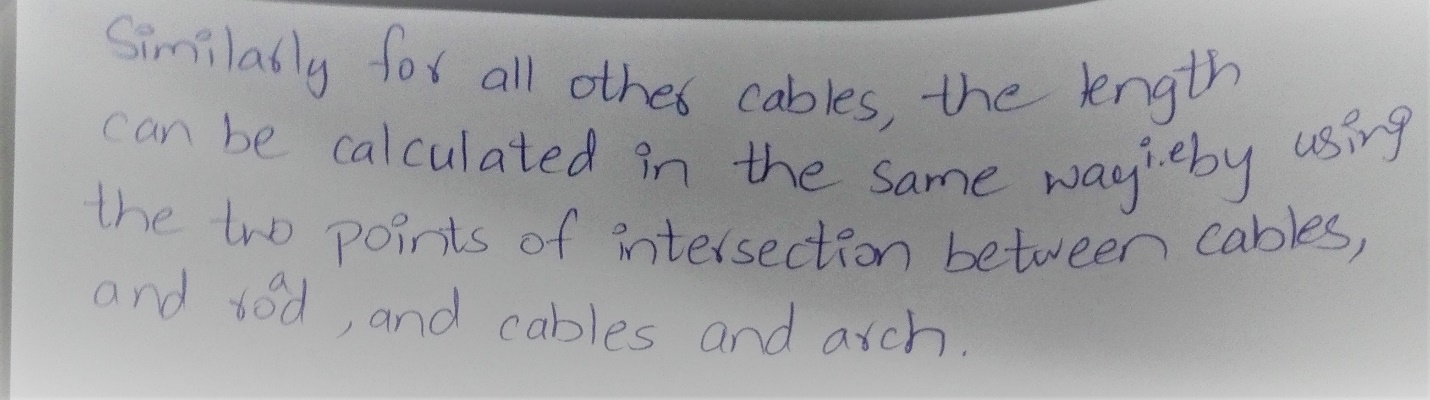 Similarly for all other cables, the length
can be calculated in the same way i.e by using
the two points of intersection between cables,
and road, and cables and arch.